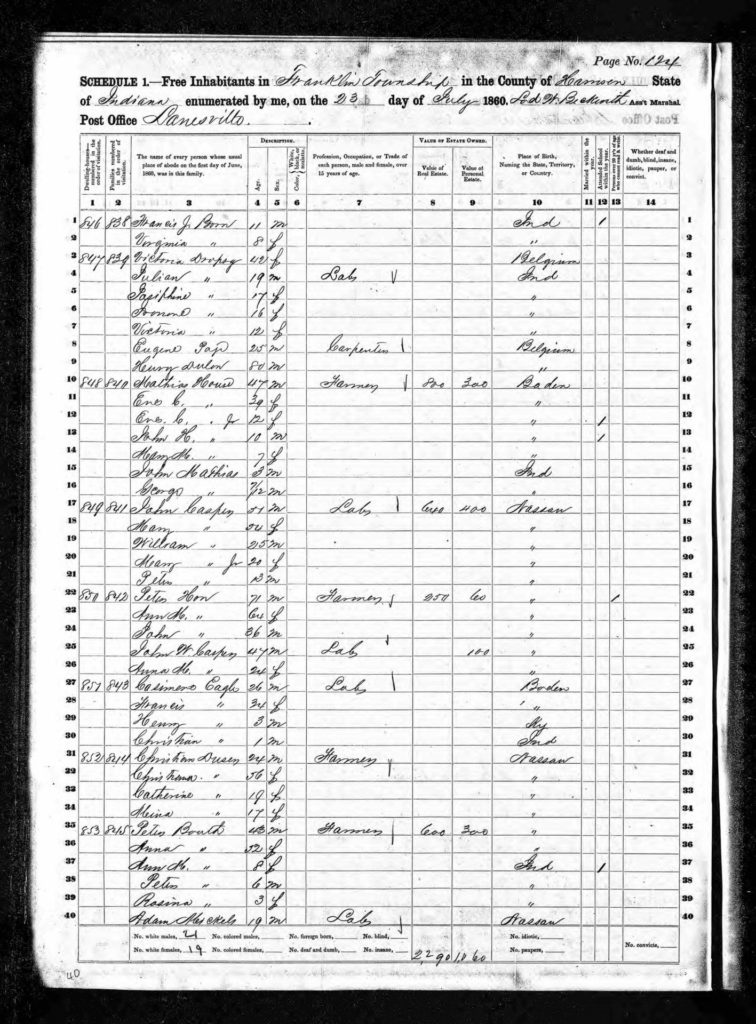 Page No. 124
SCHEDULE 1.—Free Inhabitants in Franklin Township in the County of Harrison State
of Indiana enumerated by me, on the 23 day of July 1860. Ass't Marshal.
Post Office Lanesville.
DESCRIPTION. VALUE OF ESTATE OWNED.
Dwelling-houses—numbered in the order of visitation. Families numbered in the order of visitation. The name of every person whose usual place of abode on the first day of June, 1860, was in this family. Age. Sex. Color, White, black, or mulatto. Profession, Occupation, or Trade of each person, male and female, over 15 years of age. Value of Real Estate. Value of Personal Estate. Place of Birth, Naming the State, Territory, or Country. Married within the year. Attended School within the year. Persons over 20 y'rs of age who cannot read & write. Whether deaf and dumb, blind, insane, idiotic, pauper, or convict.
1 2 3 4 5 6 7 8 9 10 11 12 13 14
1 846 838 Francis J. Born 11 m Ind 1 1
2 Virginia " 8 f " 2
3 847 839 Victoria 42 f Belgium 3
4 Julian " 19 m Labr Ind 4
5 Josiphine " 17 f " 5
6 " 16 f " 6
7 Victoria " 12 f " 7
8 Eugene 25 m Carpenter Belgium 8
9 Henry Dulon 80 m " 9
10 848 840 Mathias House 47 m Farmer 800 300 Baden 10
11 Eve C. " 39 f " 11
12 Eve. C. " Jr 12 f " 1 12
13 John H. " 10 m " 1 13
14 Mary M. " 7 f " 14
15 John Mathias 3 m Ind 15
16 George " 7/12 m " 16
17 849 841 John Casper 51 m Labr 640 400 Nassau 17
18 Mary " 54 f " 18
19 William " 25 m " 19
20 Mary " Jr 20 f " 20
21 Peter " 13 m " 21
22 850 842 Peter Hon 71 m Farmer 250 60 " 1 22
23 Ann M. " 64 f " 23
24 John " 36 m " 24
25 John W. Casper 47 m Labr 100 " 25
26 Anna M. " 24 f " 26
27 851 843 Casimere Eagle 26 m Labr Boden 27
28 Francis " 34 f " 28
29 Henry " 3 m Ky 29
30 Christian " 1 m Ind 30
31 852 844 Christian Dusen 24 m Farmer Nassau 31
32 Christiana " 56 f " 32
33 Catherine " 19 f " 33
34 Meina " 17 f " 34
35 853 845 Peter Bouth 43 m Farmer 600 300 " 35
36 Anna " 32 f " 36
37 Ann M. " 8 f Ind 1 37
38 Peter " 6 m " 38
39 Rosina " 3 f " 39
40 Adam 19 m Labr Nassau 40
No. white males, 21 No. colored males, No. foreign born, No. blind, No. idiotic,
No. white females, 19 No. colored females, No. deaf and dumb, No. insane, 2,290 1,860 No. paupers, No. convicts,
40